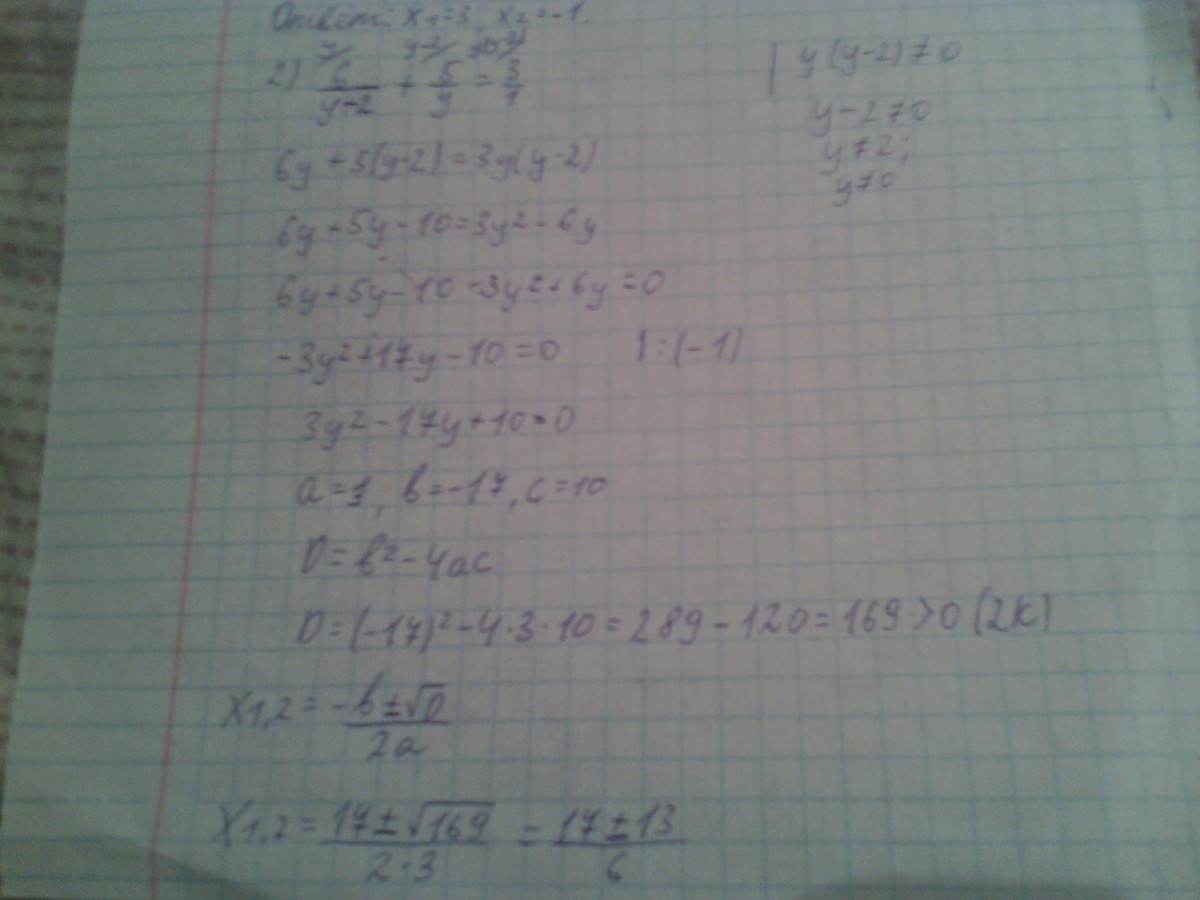 Ответ: x₁=3, x₂=-1.
2) 6/(y-2) + 5/y = 3/1 | y(y-2)≠0
y-2≠0
y≠2;
y≠0
6y+5(y-2)=3y(y-2)
6y+5y-10=3y²-6y
6y+5y-10-3y²+6y=0
-3y²+17y-10=0 |:(-1)
3y²-17y+10=0
a=3, b=-17, c=10
D=b²-4ac
D=(-17)²-4·3·10=289-120=169>0 (2К)
X₁,₂=(-b±√D)/(2a)
X₁,₂=(17±√169)/(2·3)=(17±13)/6